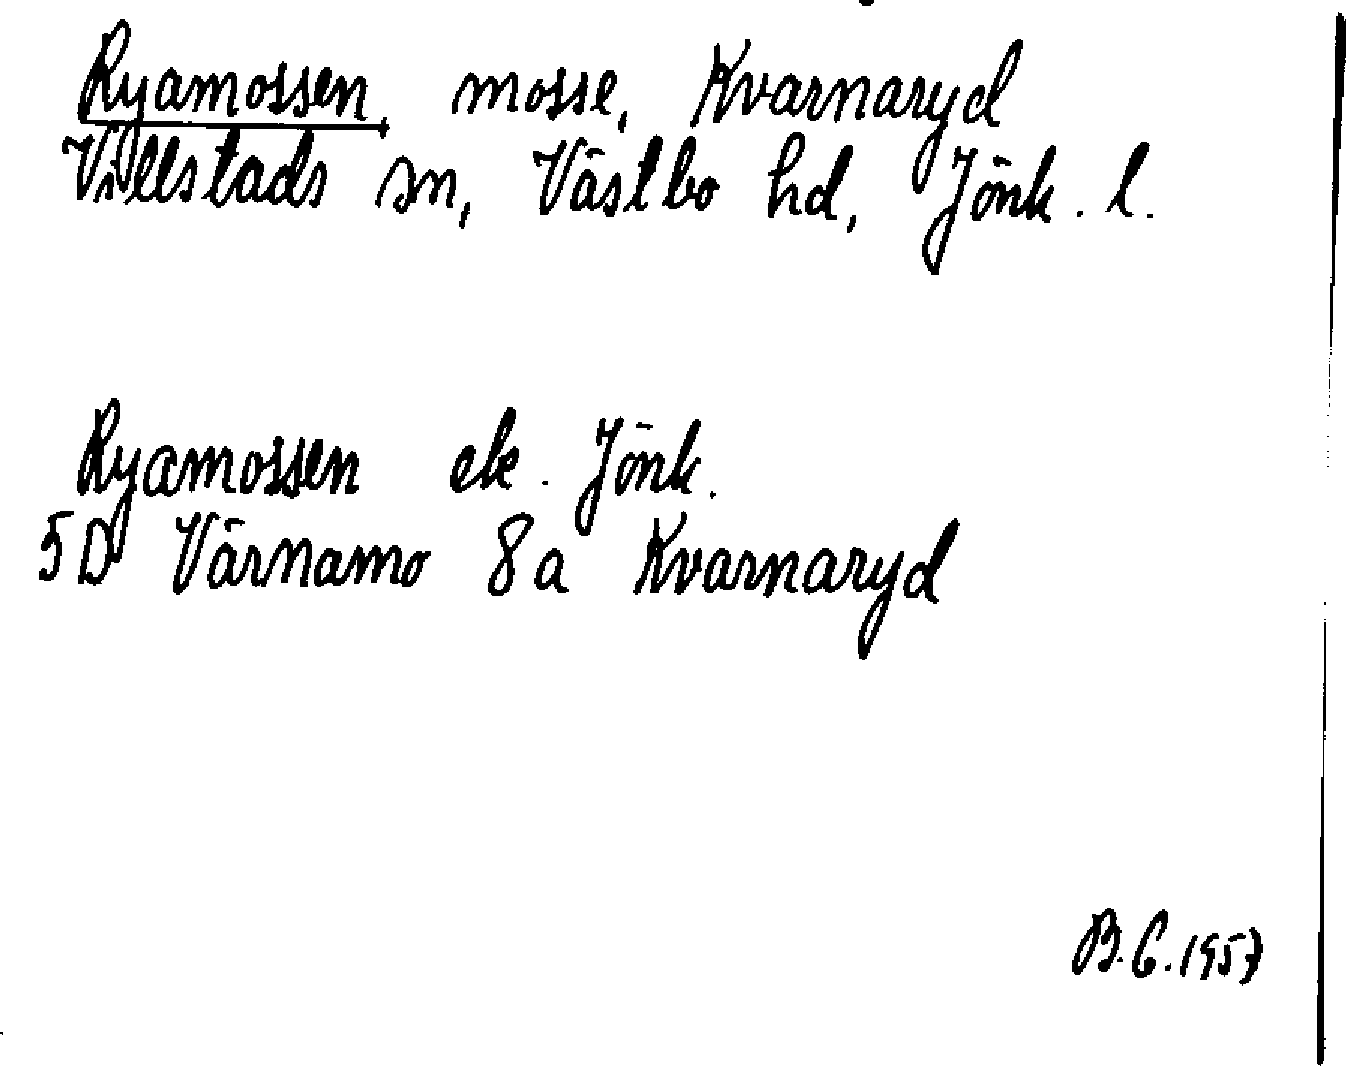 Ryamossen, mosse, Kvarnaryd
Villstads sn, Västbo hd, Jönk. l.
Ryamossen ek. Jönk.
5D Värnamo 8a Kvarnaryd
B.C. 1957